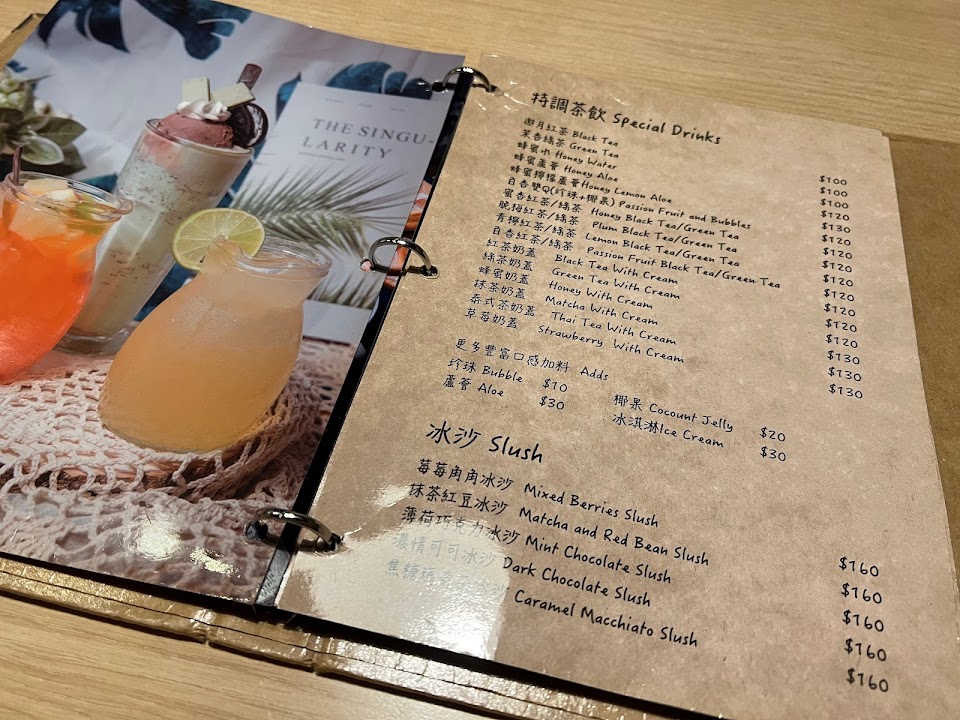 THE SINGU-
LARITY
特調茶飲 Special Drinks
遨月紅茶 Black Tea $100
茉香綠茶 Green Tea $100
蜂蜜水 Honey Water $100
蜂蜜蘆薈 Honey Aloe $120
蜂蜜檸檬蘆薈Honey Lemon Aloe $130
百香雙Q(珍珠+椰果) Passion Fruit and Bubbles $120
蜜香紅茶/綠茶 Honey Black Tea/Green Tea $120
脆梅紅茶/綠茶 Plum Black Tea/Green Tea $120
青檸紅茶/綠茶 Lemon Black Tea/Green Tea $120
百香紅茶/綠茶 Passion Fruit Black Tea/Green Tea $120
紅茶奶蓋 Black Tea With Cream $120
綠茶奶蓋 Green Tea With Cream $120
蜂蜜奶蓋 Honey With Cream $120
抹茶奶蓋 Matcha With Cream $130
泰式茶奶蓋 Thai Tea With Cream $130
草莓奶蓋 Strawberry With Cream $130
更多豐富口感加料 Adds
珍珠 Bubble $10 椰果 Cocount Jelly $20
蘆薈 Aloe $30 冰淇淋Ice Cream $30
冰沙 Slush
莓莓角角冰沙 Mixed Berries Slush $160
抹茶紅豆冰沙 Matcha and Red Bean Slush $160
薄荷巧克力冰沙 Mint Chocolate Slush $160
濃情可可冰沙 Dark Chocolate Slush $160
焦糖 Caramel Macchiato Slush $160